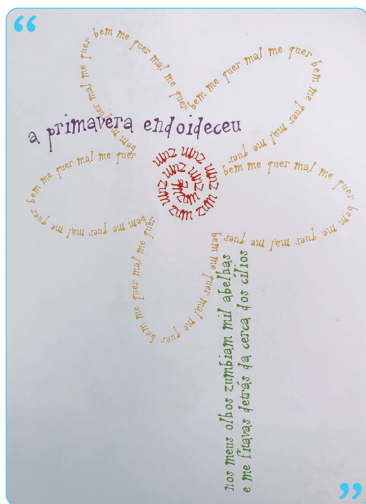 a primavera endoideceu
bem me quer mal me quer bem me quer mal me quer
bem me quer mal me quer bem me quer mal me quer
bem me quer mal me quer bem me quer mal me quer
bem me quer mal me quer bem me quer mal me quer
bem me quer mal me quer bem me quer mal me quer
zum zum zum zum zum zum zum zum zum zum
nos meus olhos zumbiam mil abelhas
e me fitavas detrás da cerca dos cílios